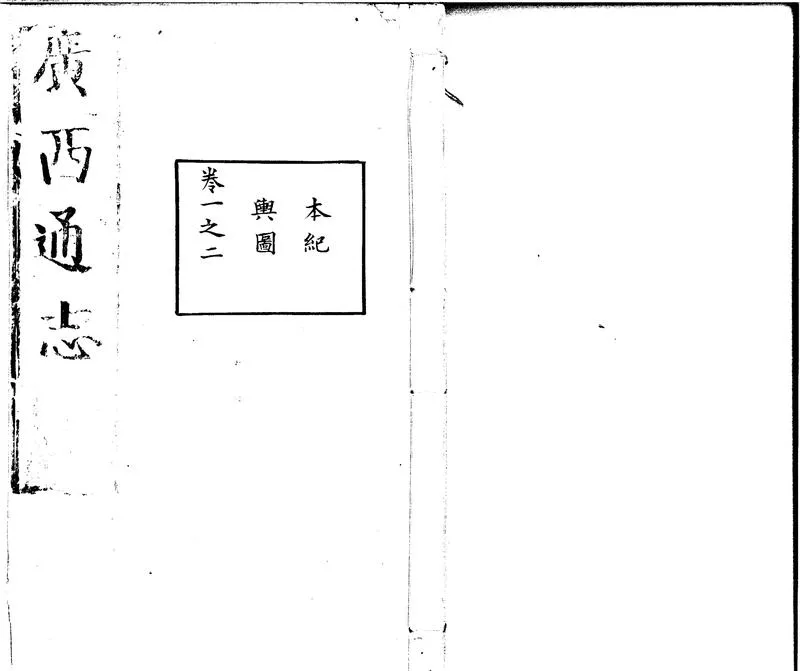 廣西通志
本紀
輿圖
卷一之二